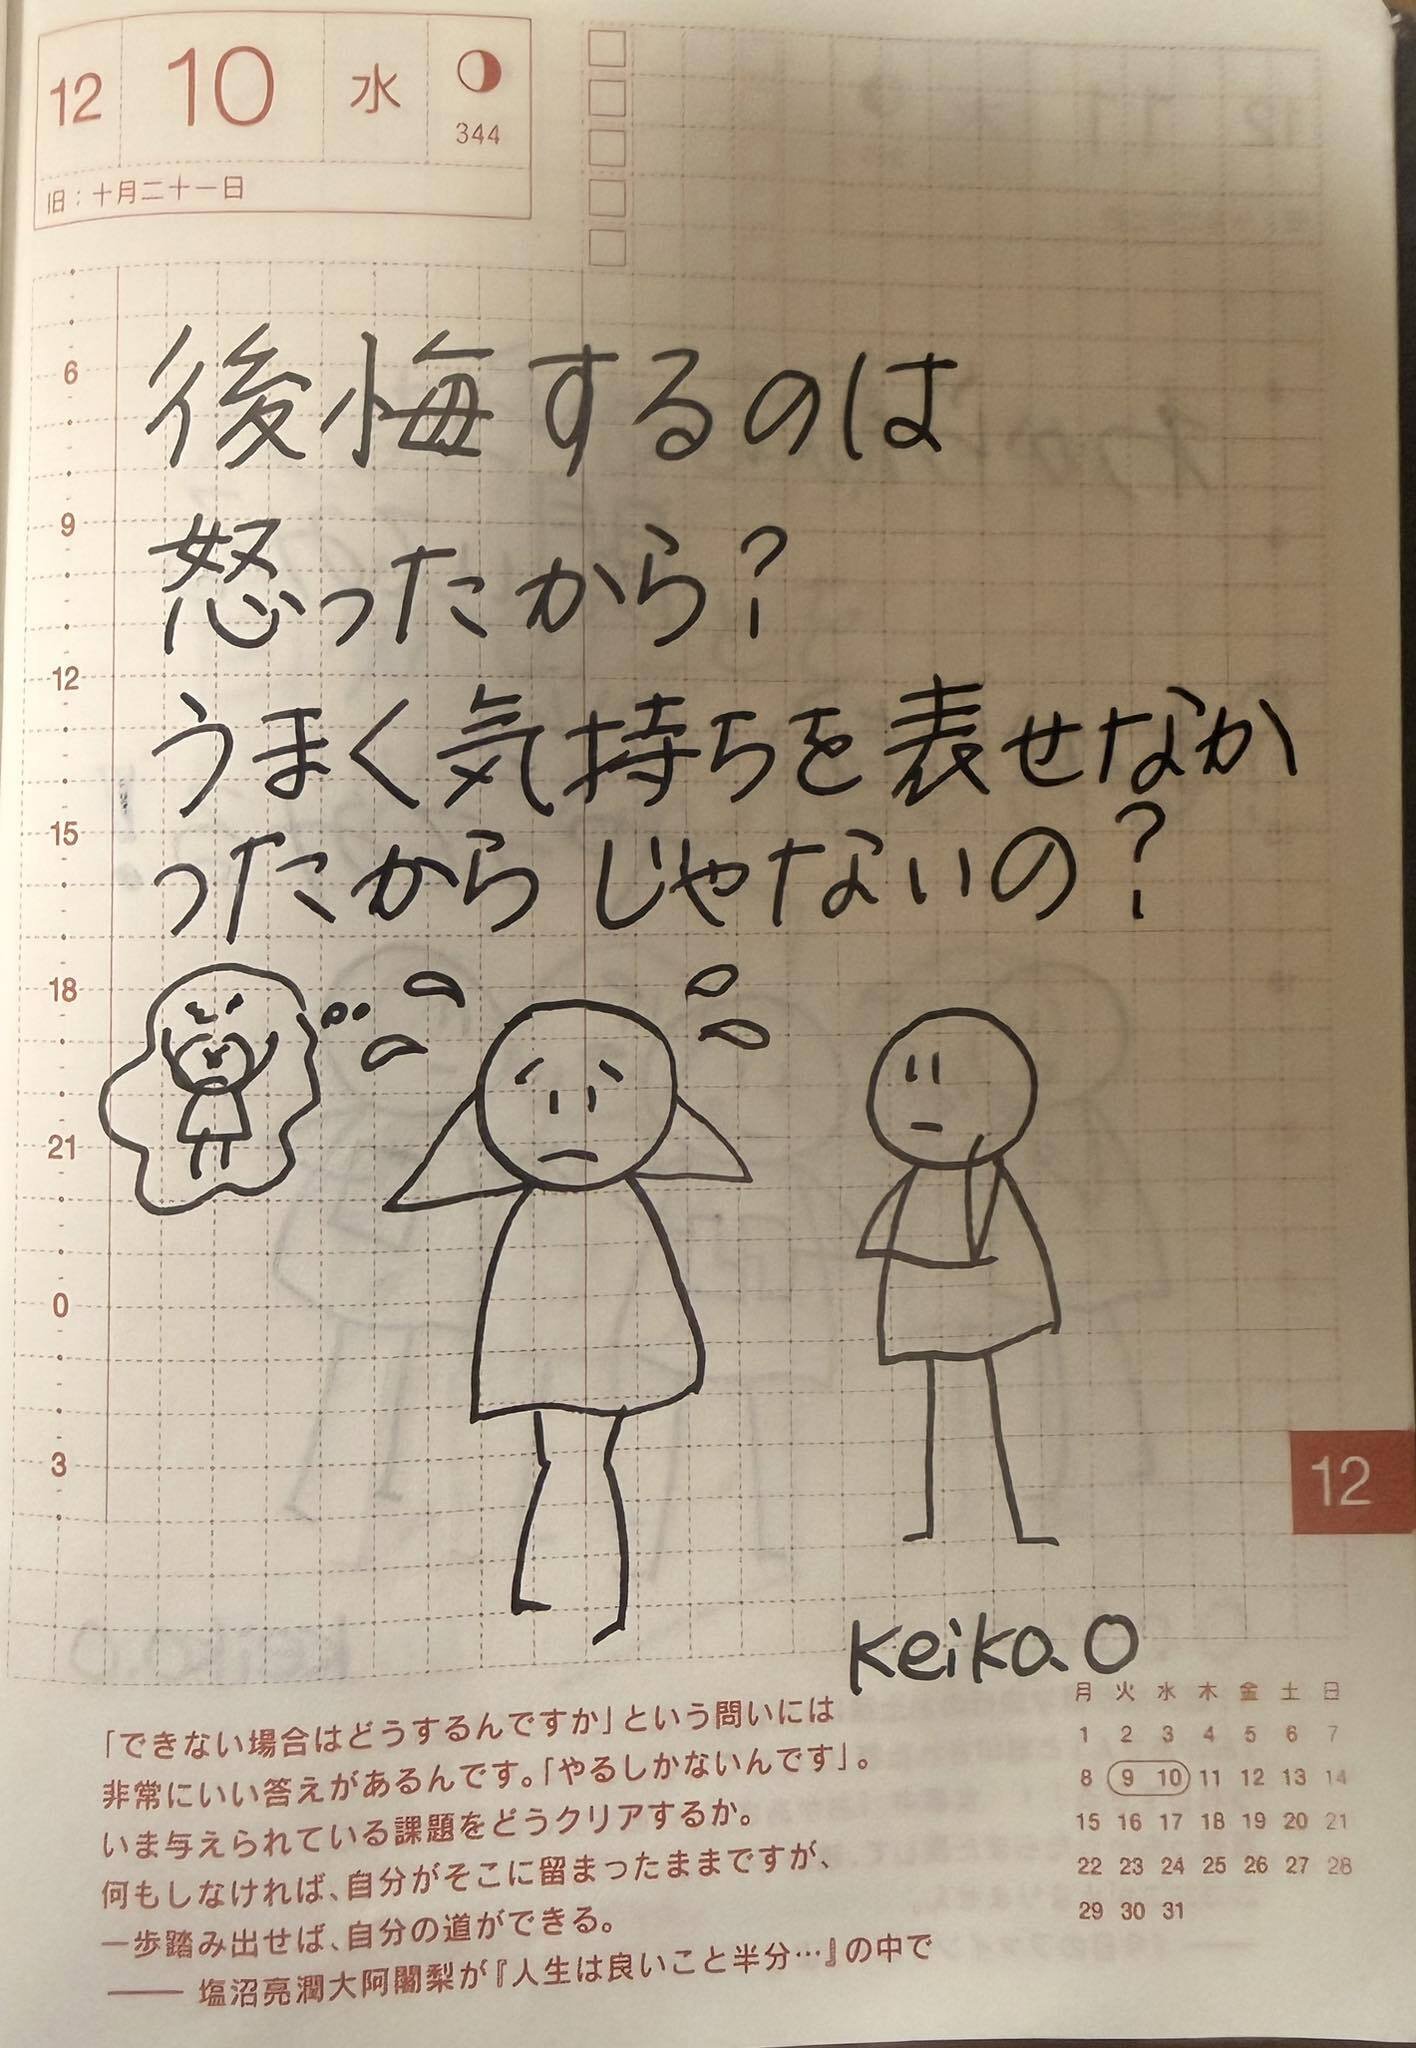 12 10 水
344
旧：十月二十一日
後悔するのは
怒ったから？
うまく気持ちを表せなか
ったからじゃないの？
6
9
12
15
18
21
0
3
12
Keiko.O
「できない場合はどうするんですか」という問いには
非常にいい答えがあるんです。「やるしかないんです」。
いま与えられている課題をどうクリアするか。
何もしなければ、自分がそこに留まったままですが、
一歩踏み出せば、自分の道ができる。
―― 塩沼亮潤大阿闍梨が『人生は良いこと半分…』の中で
月 火 水 木 金 土 日
1 2 3 4 5 6 7
8 9 10 11 12 13 14
15 16 17 18 19 20 21
22 23 24 25 26 27 28
29 30 31